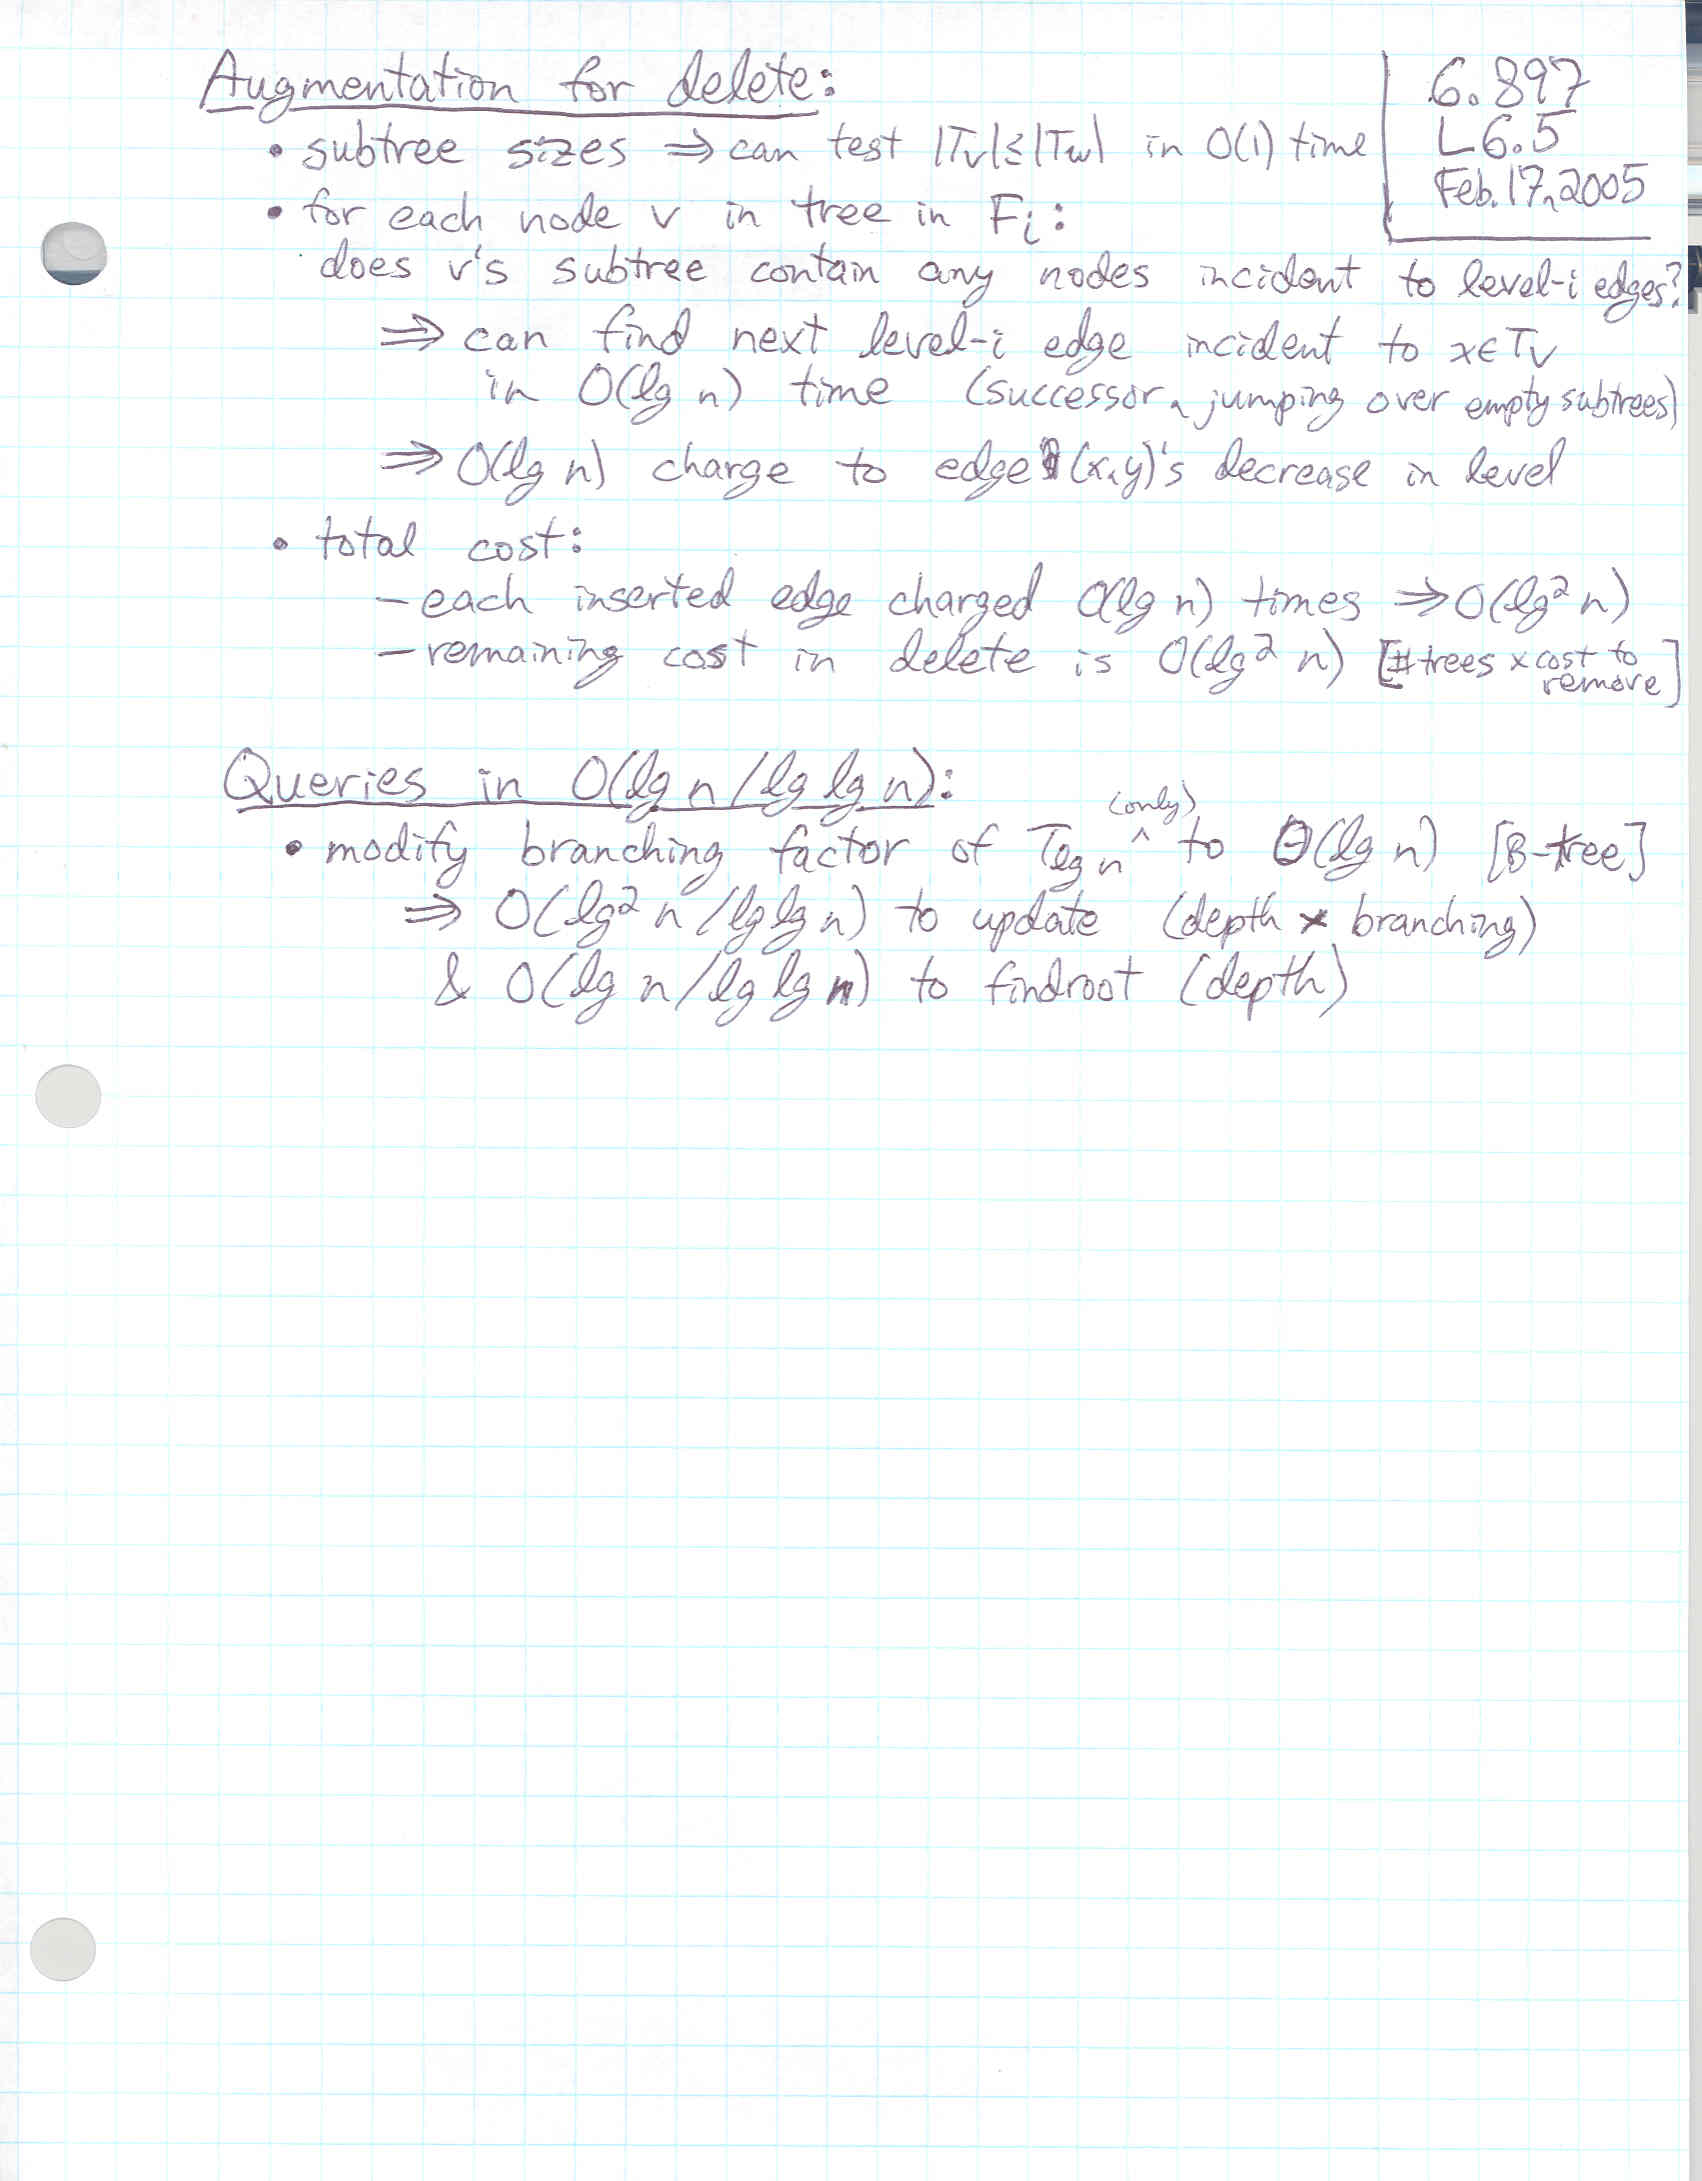 Augmentation for delete:
• subtree sizes ⇒ can test |Tv|≤|Tw| in O(1) time
6.897
L6.5
Feb. 17, 2005
• for each node v in tree in Fi:
does v's subtree contain any nodes incident to level-i edges?
⇒ can find next level-i edge incident to x∈Tv
in O(lg n) time (successor, jumping over empty subtrees)
⇒ O(lg n) charge to edge (x,y)'s decrease in level
• total cost:
– each inserted edge charged O(lg n) times ⇒ O(lg² n)
– remaining cost in delete is O(lg² n) [# trees × cost to
remove]
Queries in O(lg n/lg lg n):
(only)
• modify branching factor of Tlg n ^ to Θ(lg n) [B-tree]
⇒ O(lg² n/lg lg n) to update (depth × branching)
& O(lg n/lg lg n) to findroot (depth)